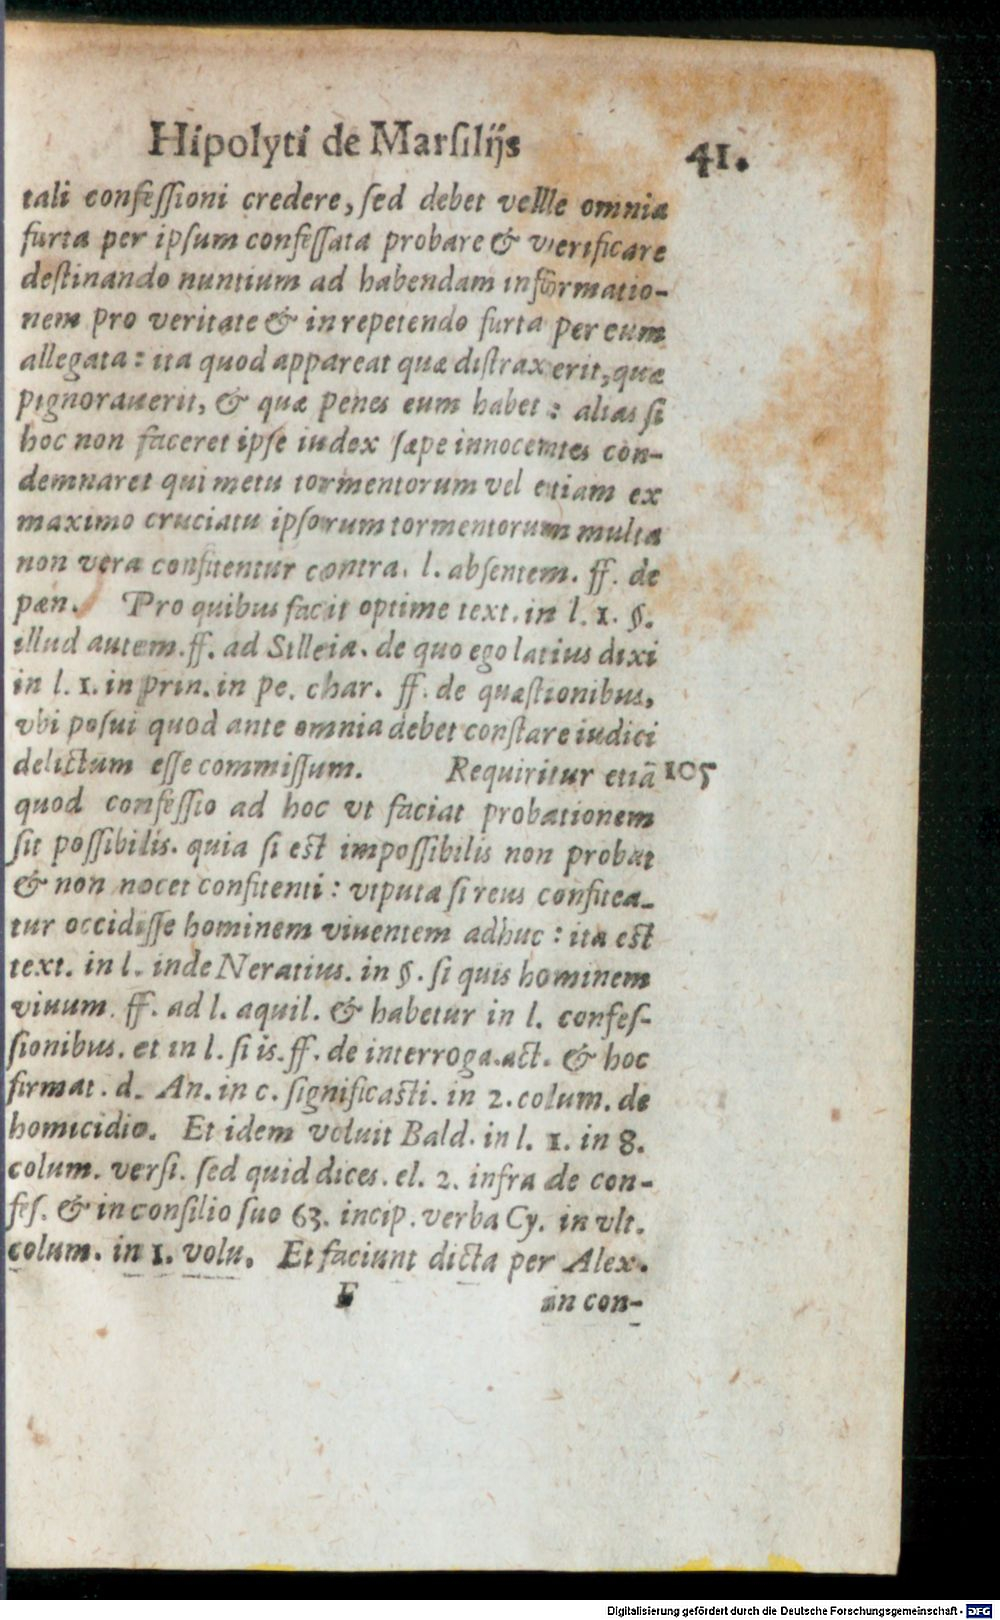 Hipolyti de Marſilijs 41.
tali confeſſioni credere, ſed debet vellle omnia
furta per ipſum confeſſata probare & verificare
deſtinando nuntium ad habendam informatio-
nem pro veritate & in repetendo furta per eum
allegata: ita quod appareat quæ diſtraxerit, quæ
pignorauerit, & quæ penes eum habet: alias ſi
hoc non faceret ipſe iudex ſæpe innocentes con-
demnaret qui metu tormentorum vel etiam ex
maximo cruciatu ipſorum tormentorum multa
non vera confitentur contra. l. abſentem. ff. de
pæn. Pro quibus facit optime text. in l. 1. §.
illud autem. ff. ad Silleia. de quo ego latius dixi
in l. 1. in prin. in pe. char. ff. de quæſtionibus,
vbi poſui quod ante omnia debet conſtare iudici
delictum eſſe commiſſum. Requiritur etiā 105
quod confeſſio ad hoc vt faciat probationem
ſit poſſibilis. quia ſi eſt impoſſibilis non probat
& non nocet confitenti: vtputa ſi reus confitea-
tur occidiſſe hominem viuentem adhuc: ita eſt
text. in l. inde Neratius. in §. ſi quis hominem
viuum. ff. ad l. aquil. & habetur in l. confeſ-
ſionibus. et in l. ſi is. ff. de interroga. act. & hoc
firmat. d. An. in c. ſignificaſti. in 2. colum. de
homicidio. Et idem voluit Bald. in l. 1. in 8.
colum. verſi. ſed quid dices. el. 2. infra de con-
feſ. & in conſilio ſuo 63. incip. verba Cy. in vlt.
colum. in 1. volu. Et faciunt dicta per Alex.
F in con-
Digitalisierung gefördert durch die Deutsche Forschungsgemeinschaft - DFG